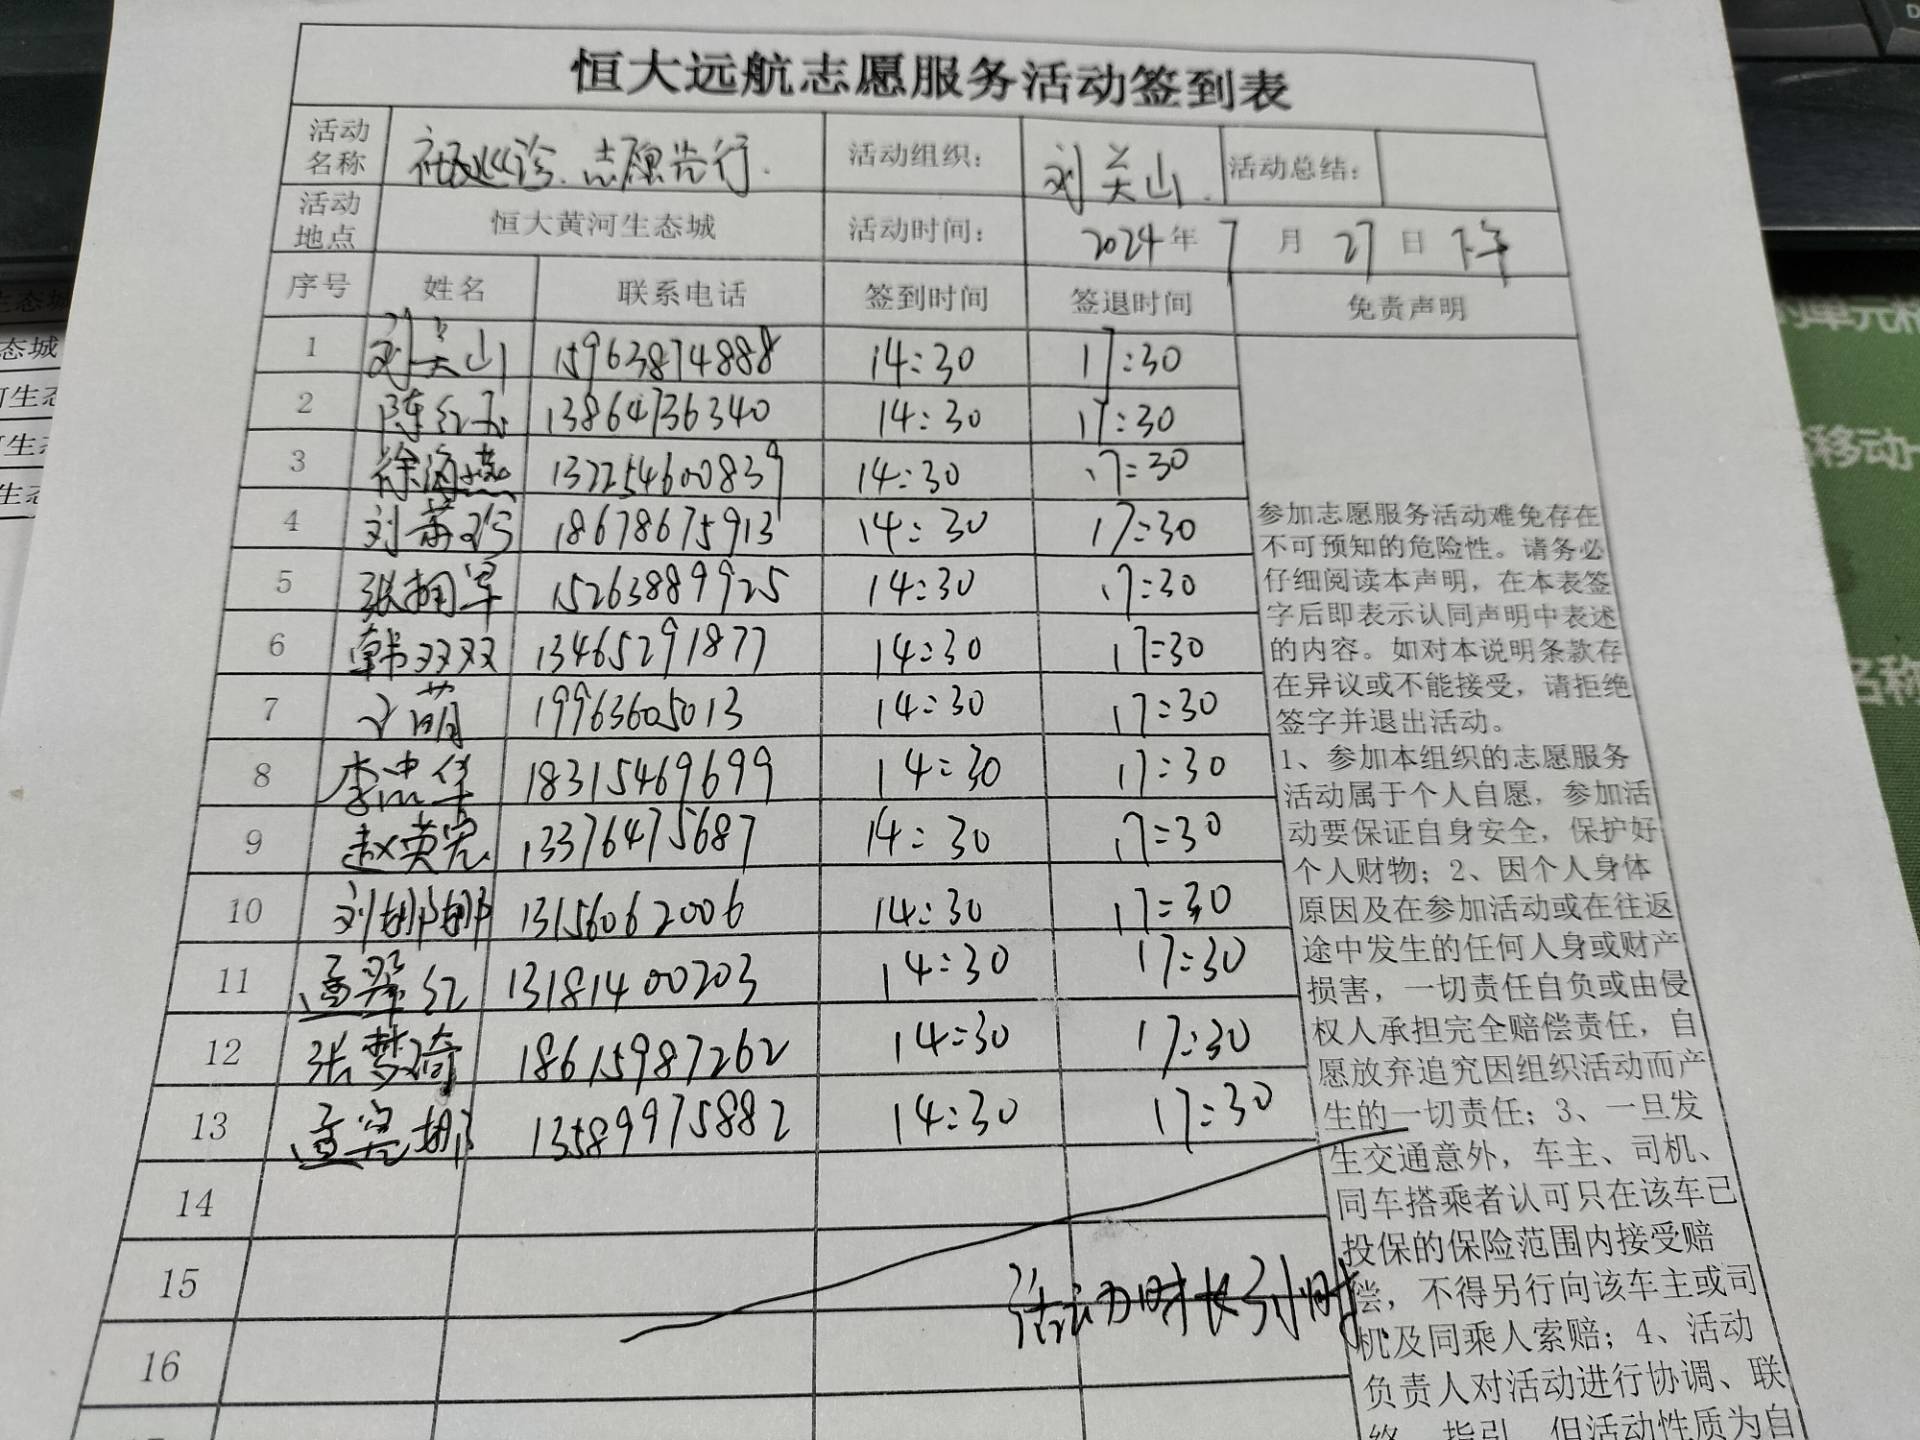 恒大远航志愿服务活动签到表
活动名称 社区巡诊.志愿先行. 活动组织： 刘关山. 活动总结：
活动地点 恒大黄河生态城 活动时间： 2024年 7 月 27 日 下午
序号 姓名 联系电话 签到时间 签退时间 免责声明
1 刘关山 15963874888 14:30 17:30
2 陈红玉 13864736340 14:30 17:30
3 徐海燕 13225460839 14:30 17:30
4 刘 18678675913 14:30 17:30
5 张拥军 15263889925 14:30 17:30
6 韩双双 13465291877 14:30 17:30
7 萌 19963605013 14:30 17:30
8 李忠华 18315469699 14:30 17:30
9 赵英宏 13376475687 14:30 17:30
10 刘娜娜 13156062006 14:30 17:30
11 孟翠红 13181400203 14:30 17:30
12 张梦琦 18615987262 14:30 17:30
13 孟宪娜 13589975882 14:30 17:30
14
15
16
活动时长3小时.
参加志愿服务活动难免存在
不可预知的危险性。请务必
仔细阅读本声明，在本表签
字后即表示认同声明中表述
的内容。如对本说明条款存
在异议或不能接受，请拒绝
签字并退出活动。
1、参加本组织的志愿服务
活动属于个人自愿，参加活
动要保证自身安全，保护好
个人财物；2、因个人身体
原因及在参加活动或在往返
途中发生的任何人身或财产
损害，一切责任自负或由侵
权人承担完全赔偿责任，自
愿放弃追究因组织活动而产
生的一切责任；3、一旦发
生交通意外，车主、司机、
同车搭乘者认可只在该车已
投保的保险范围内接受赔
偿，不得另行向该车主或司
机及同乘人索赔；4、活动
负责人对活动进行协调、联
络、指引，但活动性质为自
生态城
态城
河生态
生态
的单元格
移动
名称